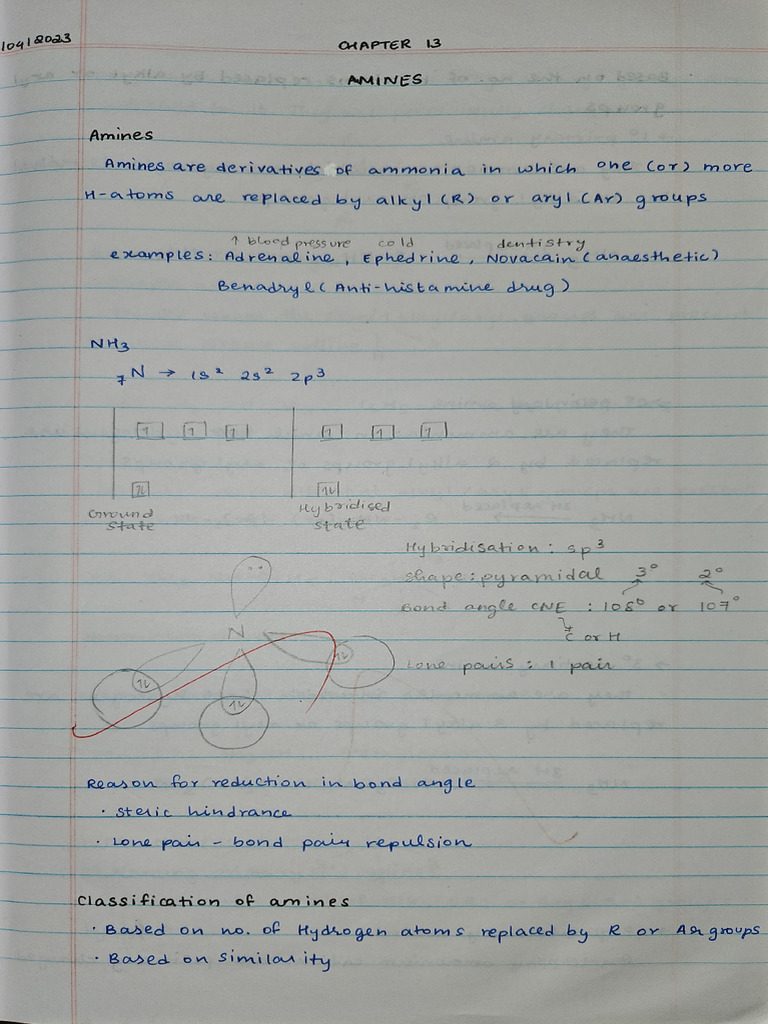 /04/2023
CHAPTER 13
AMINES
Amines
Amines are derivatives of ammonia in which one (or) more
H-atoms are replaced by alkyl (R) or aryl (Ar) groups
↑ blood pressure cold dentistry
examples: Adrenaline, Ephedrine, Novacain (anaesthetic)
Benadryl (Anti-histamine drug)
NH₃
₇N → 1s² 2s² 2p³
1 1 1 1 1 1
1L 1L
Ground Hybridised
State state
Hybridisation: sp³
shape: pyramidal 3° 2°
Bond angle CNE : 108° or 107°
C or H
N
1L 1L 1L
Lone pairs : 1 pair
Reason for reduction in bond angle
· steric hindrance
· Lone pair - bond pair repulsion
Classification of amines
· Based on no. of Hydrogen atoms replaced by R or Ar groups
· Based on similarity